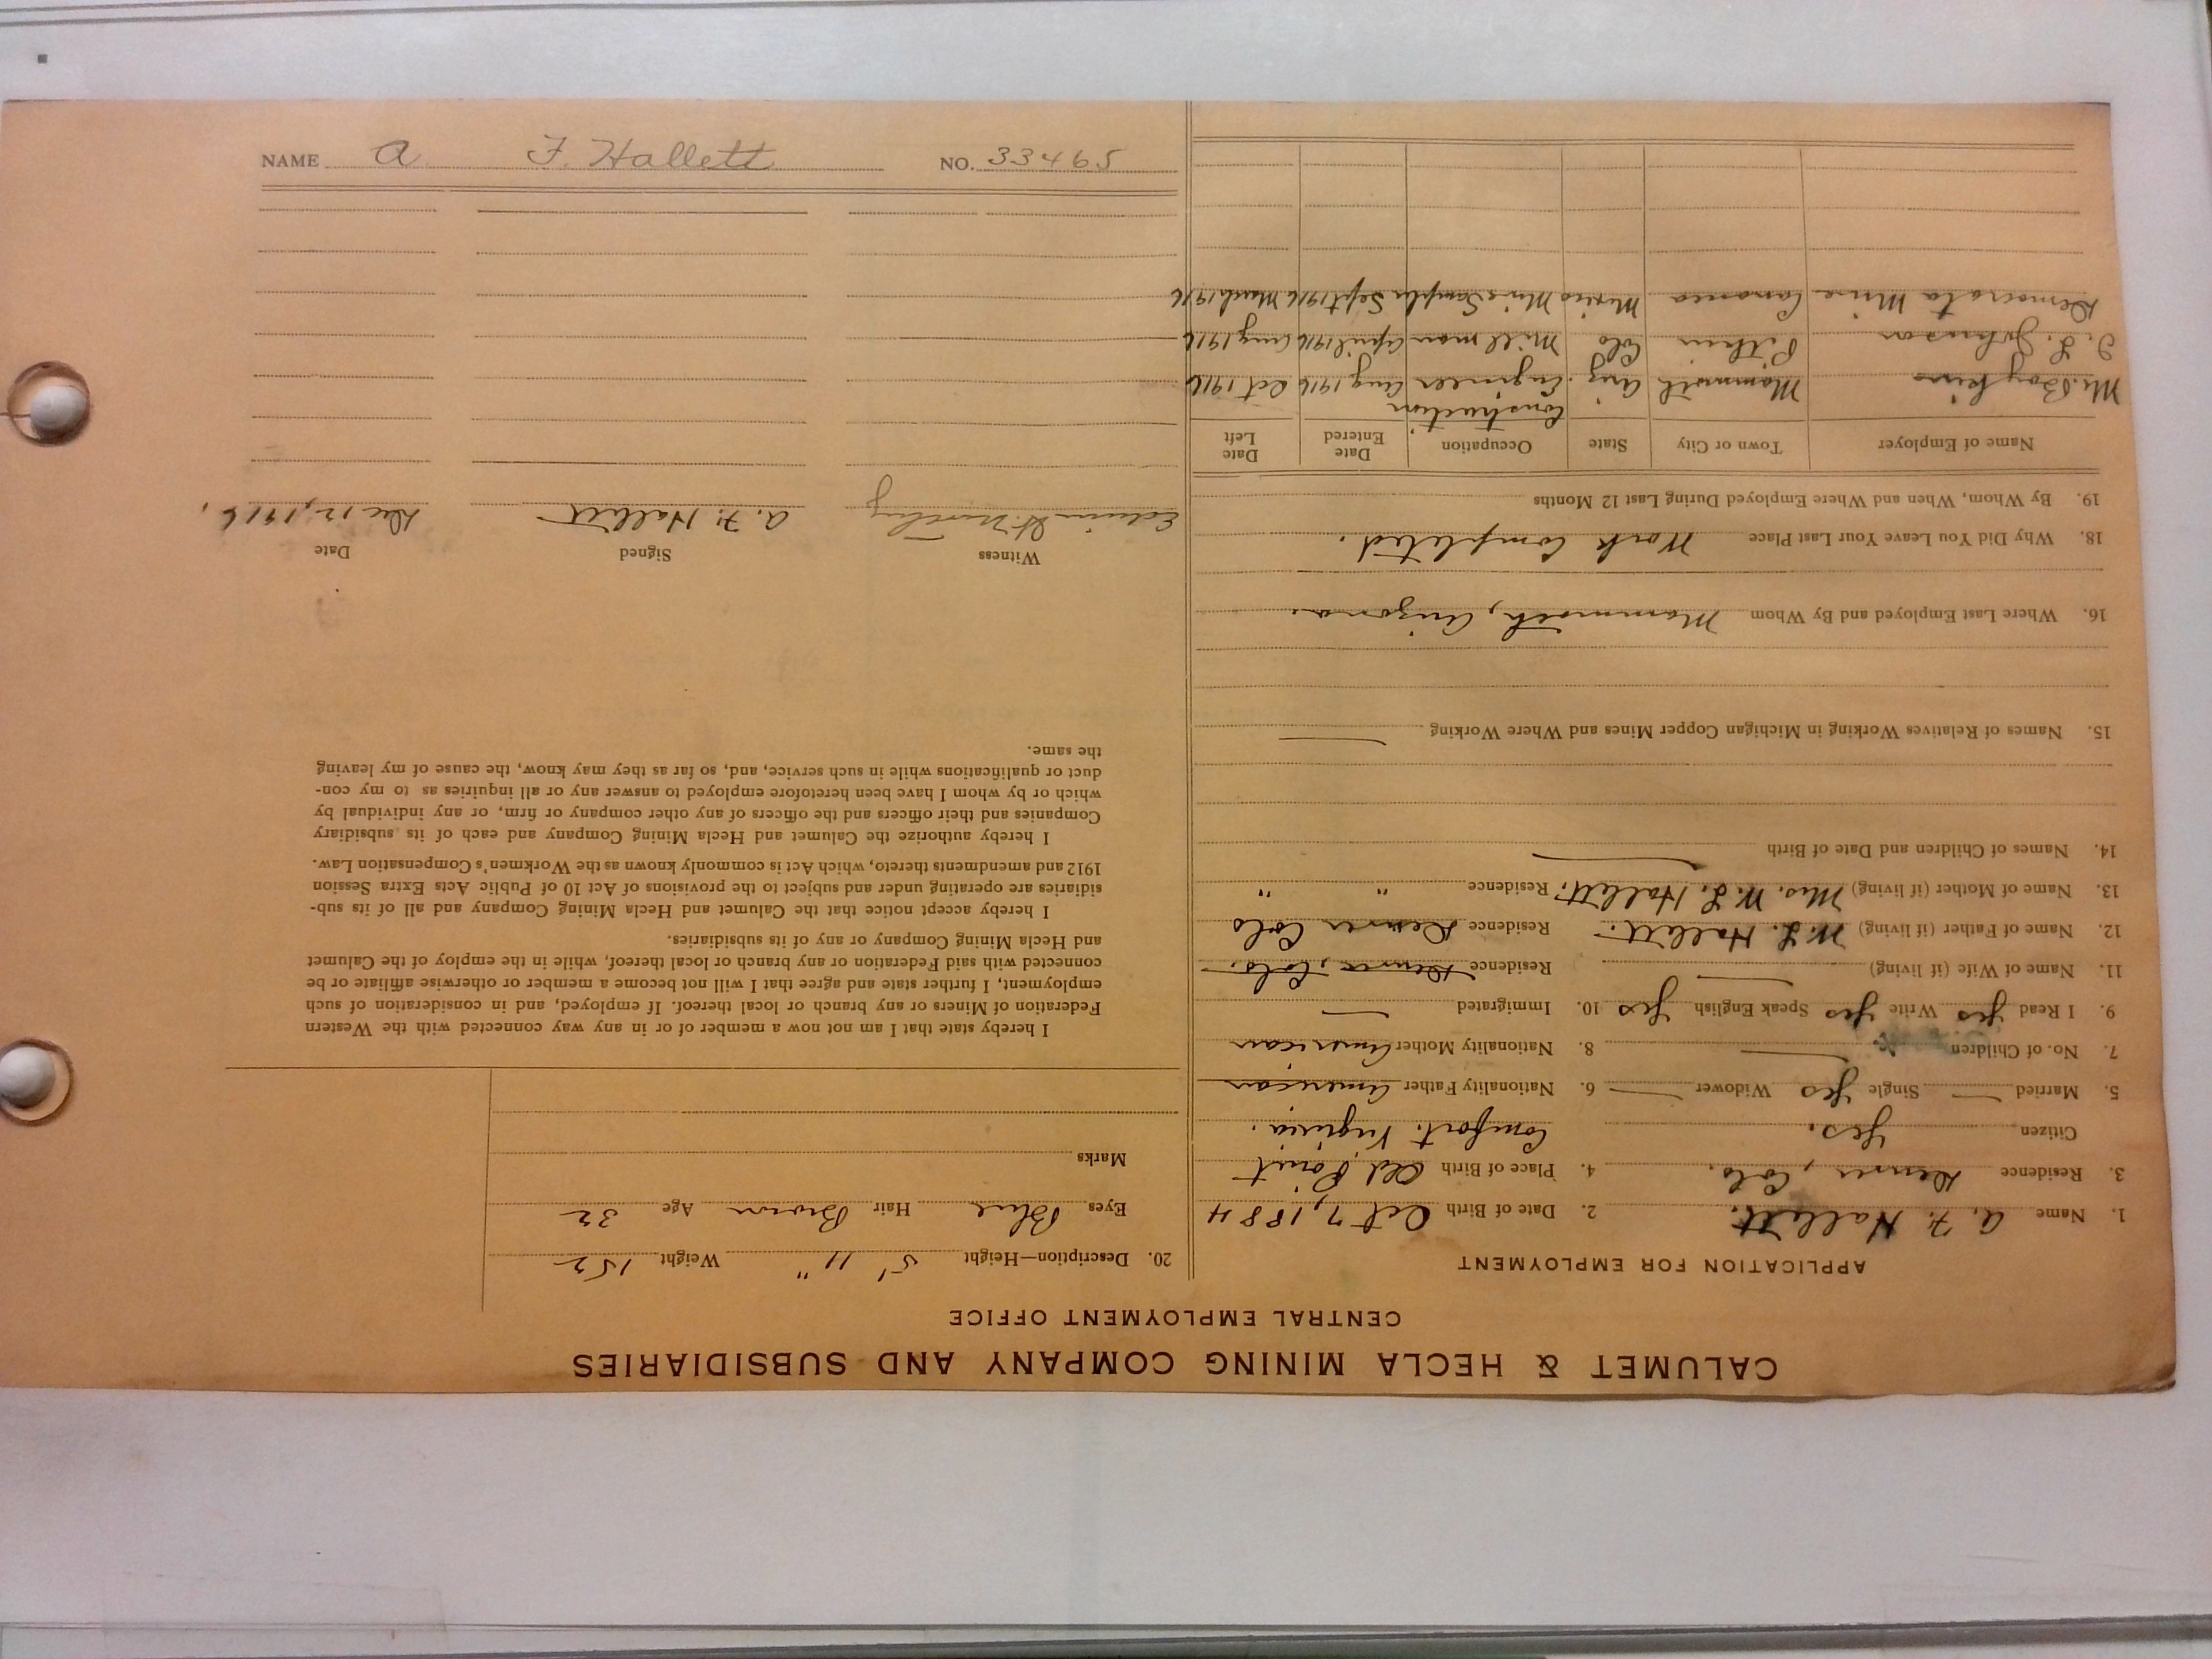 CALUMET & HECLA MINING COMPANY AND SUBSIDIARIES
CENTRAL EMPLOYMENT OFFICE
APPLICATION FOR EMPLOYMENT
1. Name A. F. Hallett. 2. Date of Birth Oct 7, 1884
3. Residence Denver, Colo. 4. Place of Birth Old Point
Citizen Yes. Comfort. Virginia.
5. Married — Single Yes Widower — 6. Nationality Father American
7. No. of Children — 8. Nationality Mother American
9. I Read Yes Write Yes Speak English Yes 10. Immigrated —
11. Name of Wife (if living) — Residence Denver, Colo.
12. Name of Father (if living) W. L. Hallett. Residence Denver Colo
13. Name of Mother (if living) Mrs. W. L. Hallett. Residence " "
14. Names of Children and Date of Birth —
15. Names of Relatives Working in Michigan Copper Mines and Where Working —
16. Where Last Employed and By Whom Mammoth, Arizona.
18. Why Did You Leave Your Last Place Work Completed.
19. By Whom, When and Where Employed During Last 12 Months
Name of Employer Town or City State Occupation Date Entered Date Left
Construction
Mammoth Ariz. Engineer Aug 1916 Oct 1916
Johnson Pitkin Colo Mill man April 1916 Aug 1916
Democrata Mine Cananea Mexico Mine Sampler Sept 1916 March 1916
20. Description—Height 5' 11" Weight 152
Eyes Blue Hair Brown Age 32
Marks
I hereby state that I am not now a member of or in any way connected with the Western
Federation of Miners or any branch or local thereof. If employed, and in consideration of such
employment, I further state and agree that I will not become a member or otherwise affiliate or be
connected with said Federation or any branch or local thereof, while in the employ of the Calumet
and Hecla Mining Company or any of its subsidiaries.
I hereby accept notice that the Calumet and Hecla Mining Company and all of its sub-
sidiaries are operating under and subject to the provisions of Act 10 of Public Acts Extra Session
1912 and amendments thereto, which Act is commonly known as the Workmen's Compensation Law.
I hereby authorize the Calumet and Hecla Mining Company and each of its subsidiary
Companies and their officers and the officers of any other company or firm, or any individual by
which or by whom I have been heretofore employed to answer any or all inquiries as to my con-
duct or qualifications while in such service, and, so far as they may know, the cause of my leaving
the same.
Witness Signed Date
Edwin H. A. F. Hallett Dec 12, 1916.
NAME A F. Hallett NO. 33465